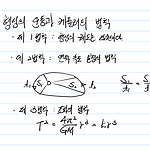 행성의 운동과 케플러의 법칙
· 제 1법칙 : 행성의 궤도는
· 제 2법칙 : 면적 속도 일정의 법칙
t₁ S₁ S₂ t₂ S₁/t₁ = S
· 제 3법칙 : 의 법칙
T² = 4π²/GM r³ = kr³